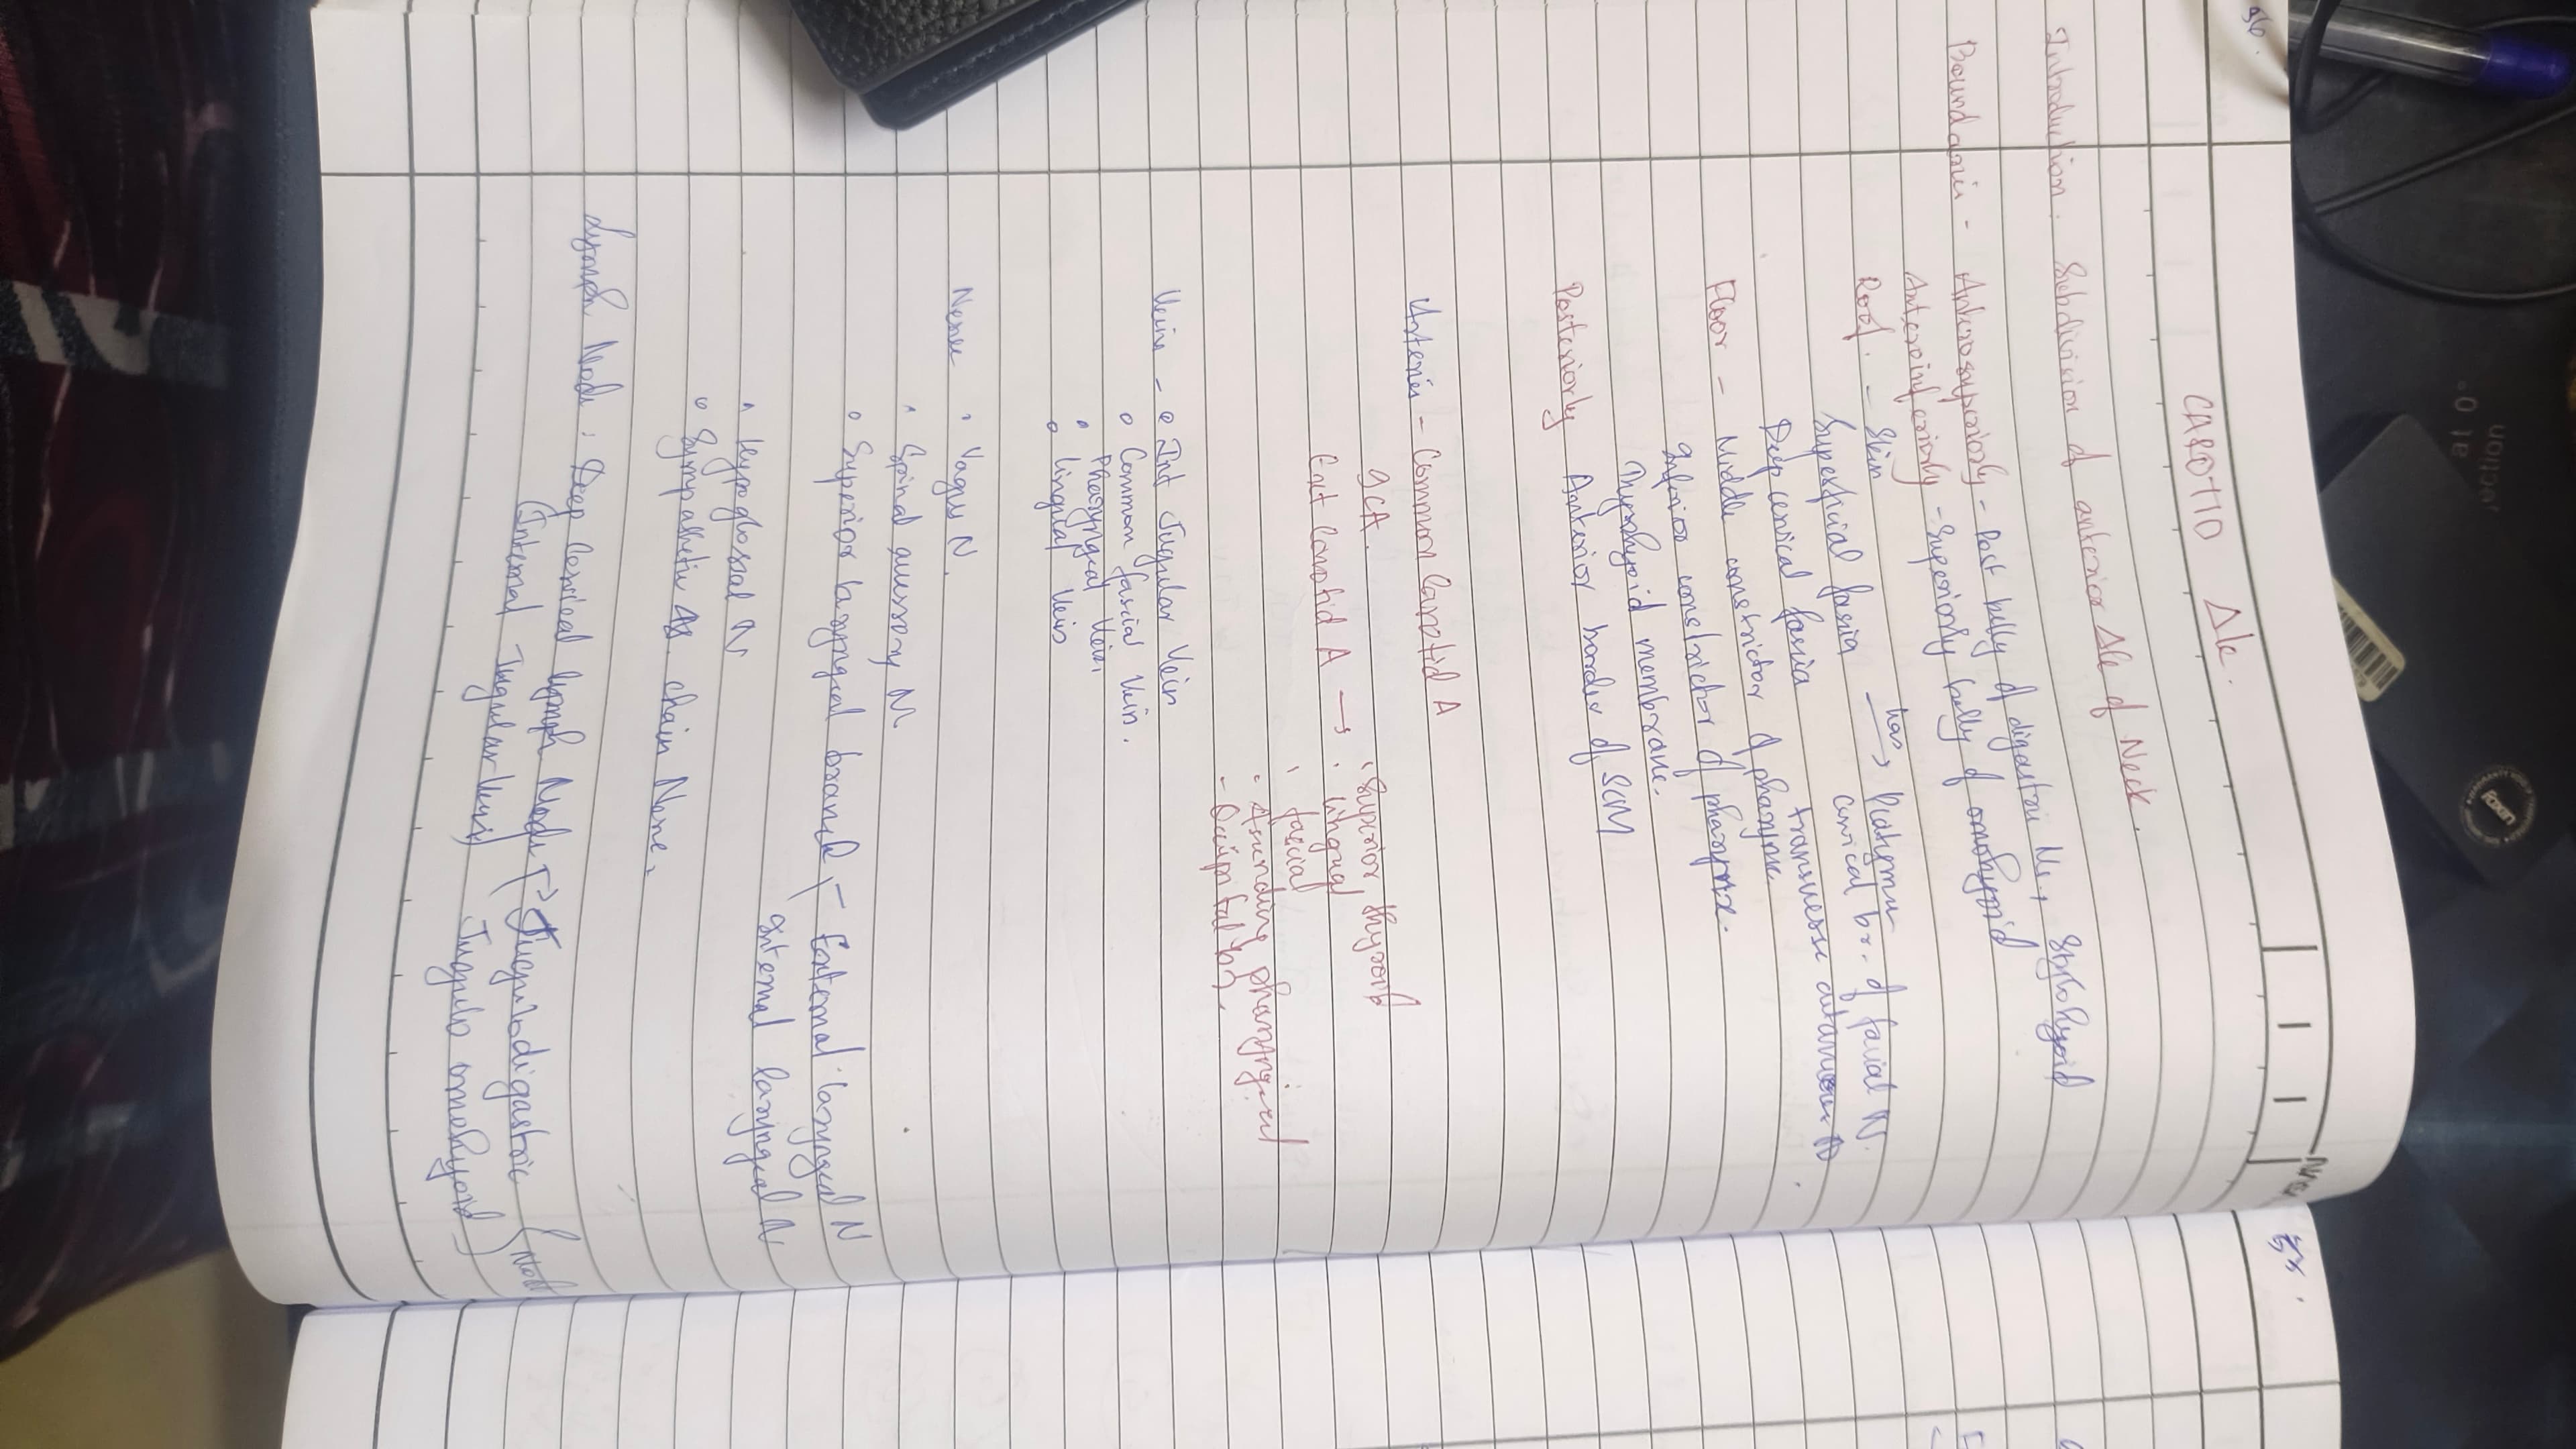 96.
CAROTID Δle.
Introduction: Subdivision of anterior Δle of Neck.
Boundaries - Anterosuperiorly - Post belly of digastric Ms + Stylohyoid
Anteroinferiorly - Superiorly belly of omohyoid
Roof. - Skin
Superficial fascia has → Platysma
cervical br. of facial N.
Deep cervical fascia transverse cutaneous N
Floor - Middle constrictor of pharynx.
Inferior constrictor of pharynx.
Thyrohyoid membrane.
Posteriorly Anterior border of SCM
Arteries - Common Carotid A
ICA.
Ext Carotid A → Superior thyroid
lingual
fascial
Ascending pharyngeal
Occipital
Vein - Int Jugular Vein
Common fascial Vein.
Pharyngeal Vein
lingual Vein
Nerve Vagus N.
Spinal accessory N
Superior laryngeal branch - External laryngeal N
Internal laryngeal N
Hypoglossal N
Sympathetic chain Nerve.
Lymph Node: Deep Cervical lymph Node Jugulodigastric Node
(Internal Jugular Vein) Jugulo omohyoid
at 0°
ection